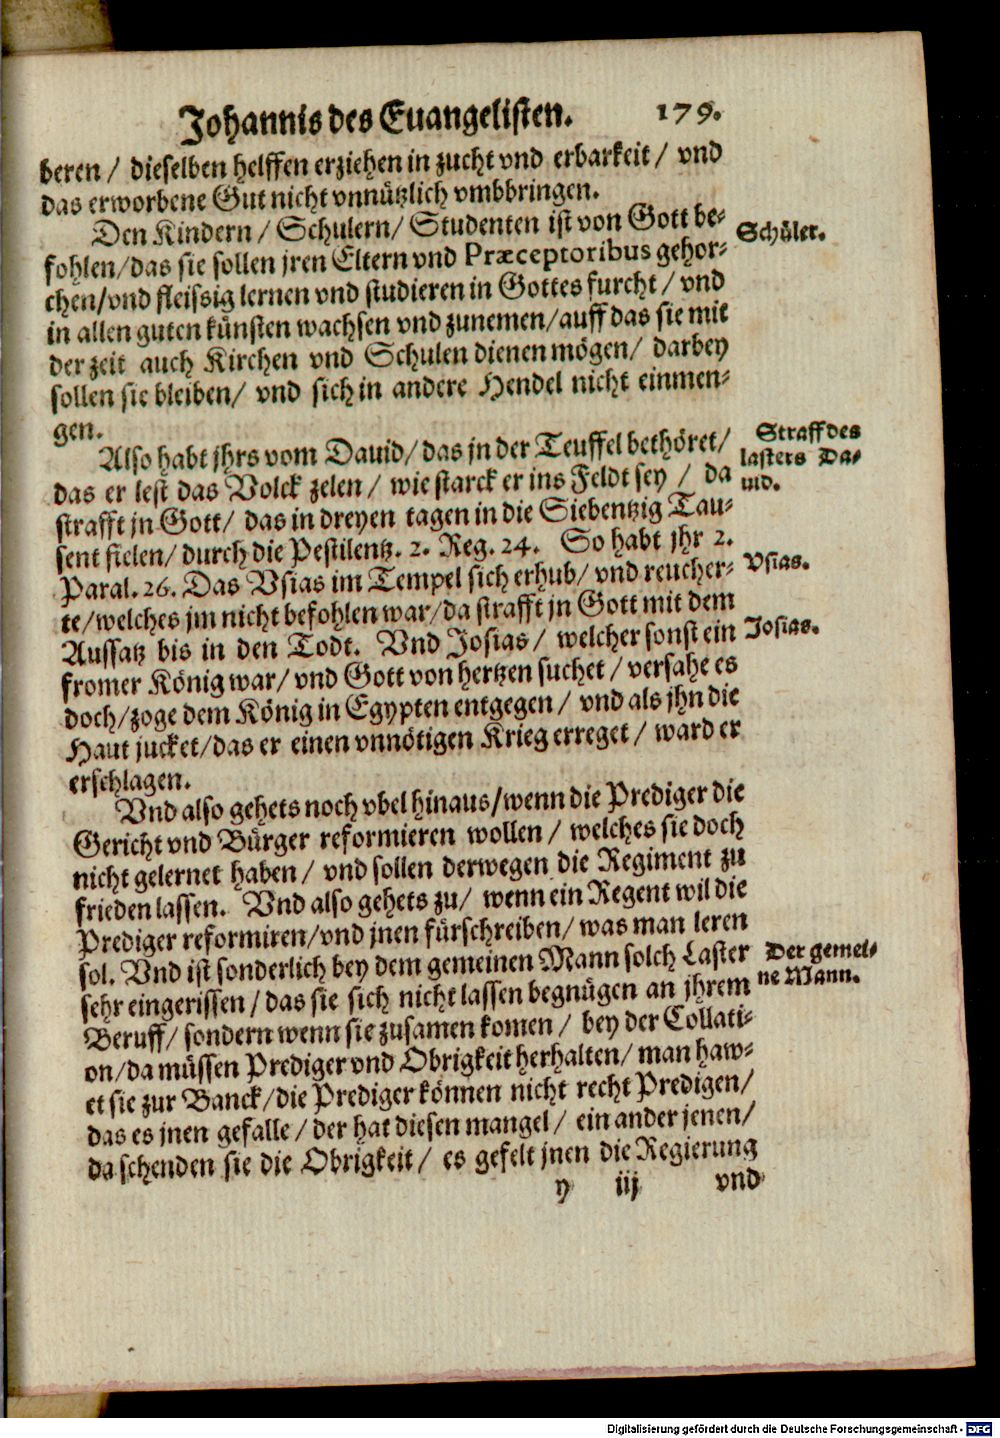 Johannis des Euangelisten. 179.
beren / dieselben helffen erziehen in zucht vnd erbarkeit / vnd
das erworbene Gut nicht vnnützlich vmbbringen.
Den Kindern / Schulern / Studenten ist von Gott be-
fohlen / das sie sollen jren Eltern vnd Præceptoribus gehor-
chen / vnd fleissig lernen vnd studieren in Gottes furcht / vnd
in allen guten künsten wachsen vnd zunemen / auff das sie mit
der zeit auch Kirchen vnd Schulen dienen mögen / darbey
sollen sie bleiben / vnd sich in andere Hendel nicht einmen-
gen.
Schüler.
Also habt jhrs vom Dauid / das jn der Teuffel bethöret /
das er lest das Volck zelen / wie starck er ins Feldt sey / da
strafft jn Gott / das in dreyen tagen in die Siebentzig Tau-
sent fielen / durch die Pestilentz. 2. Reg. 24. So habt jhr 2.
Paral. 26. Das Vsias im Tempel sich erhub / vnd reucher-
te / welches jm nicht befohlen war / da strafft jn Gott mit dem
Aussatz bis in den Todt. Vnd Josias / welcher sonst ein
fromer König war / vnd Gott von hertzen suchet / versahe es
doch / zoge dem König in Egypten entgegen / vnd als jhn die
Haut jucket / das er einen vnnötigen Krieg erreget / ward er
erschlagen.
Straff des
lasters Da-
uid.
Vsias.
Josias.
Vnd also gehets noch vbel hinaus / wenn die Prediger die
Gericht vnd Bürger reformieren wollen / welches sie doch
nicht gelernet haben / vnd sollen derwegen die Regiment zu
frieden lassen. Vnd also gehets zu / wenn ein Regent wil die
Prediger reformiren / vnd jnen fürschreiben / was man leren
sol. Vnd ist sonderlich bey dem gemeinen Mann solch Laster
sehr eingerissen / das sie sich nicht lassen begnügen an jhrem
Beruff / sondern wenn sie zusamen komen / bey der Collati-
on / da müssen Prediger vnd Obrigkeit herhalten / man haw-
et sie zur Banck / die Prediger können nicht recht Predigen /
das es jnen gefalle / der hat diesen mangel / ein ander jenen /
da schenden sie die Obrigkeit / es gefelt jnen die Regierung
Der gemei-
ne Mann.
y iij vnd
Digitalisierung gefördert durch die Deutsche Forschungsgemeinschaft - DFG